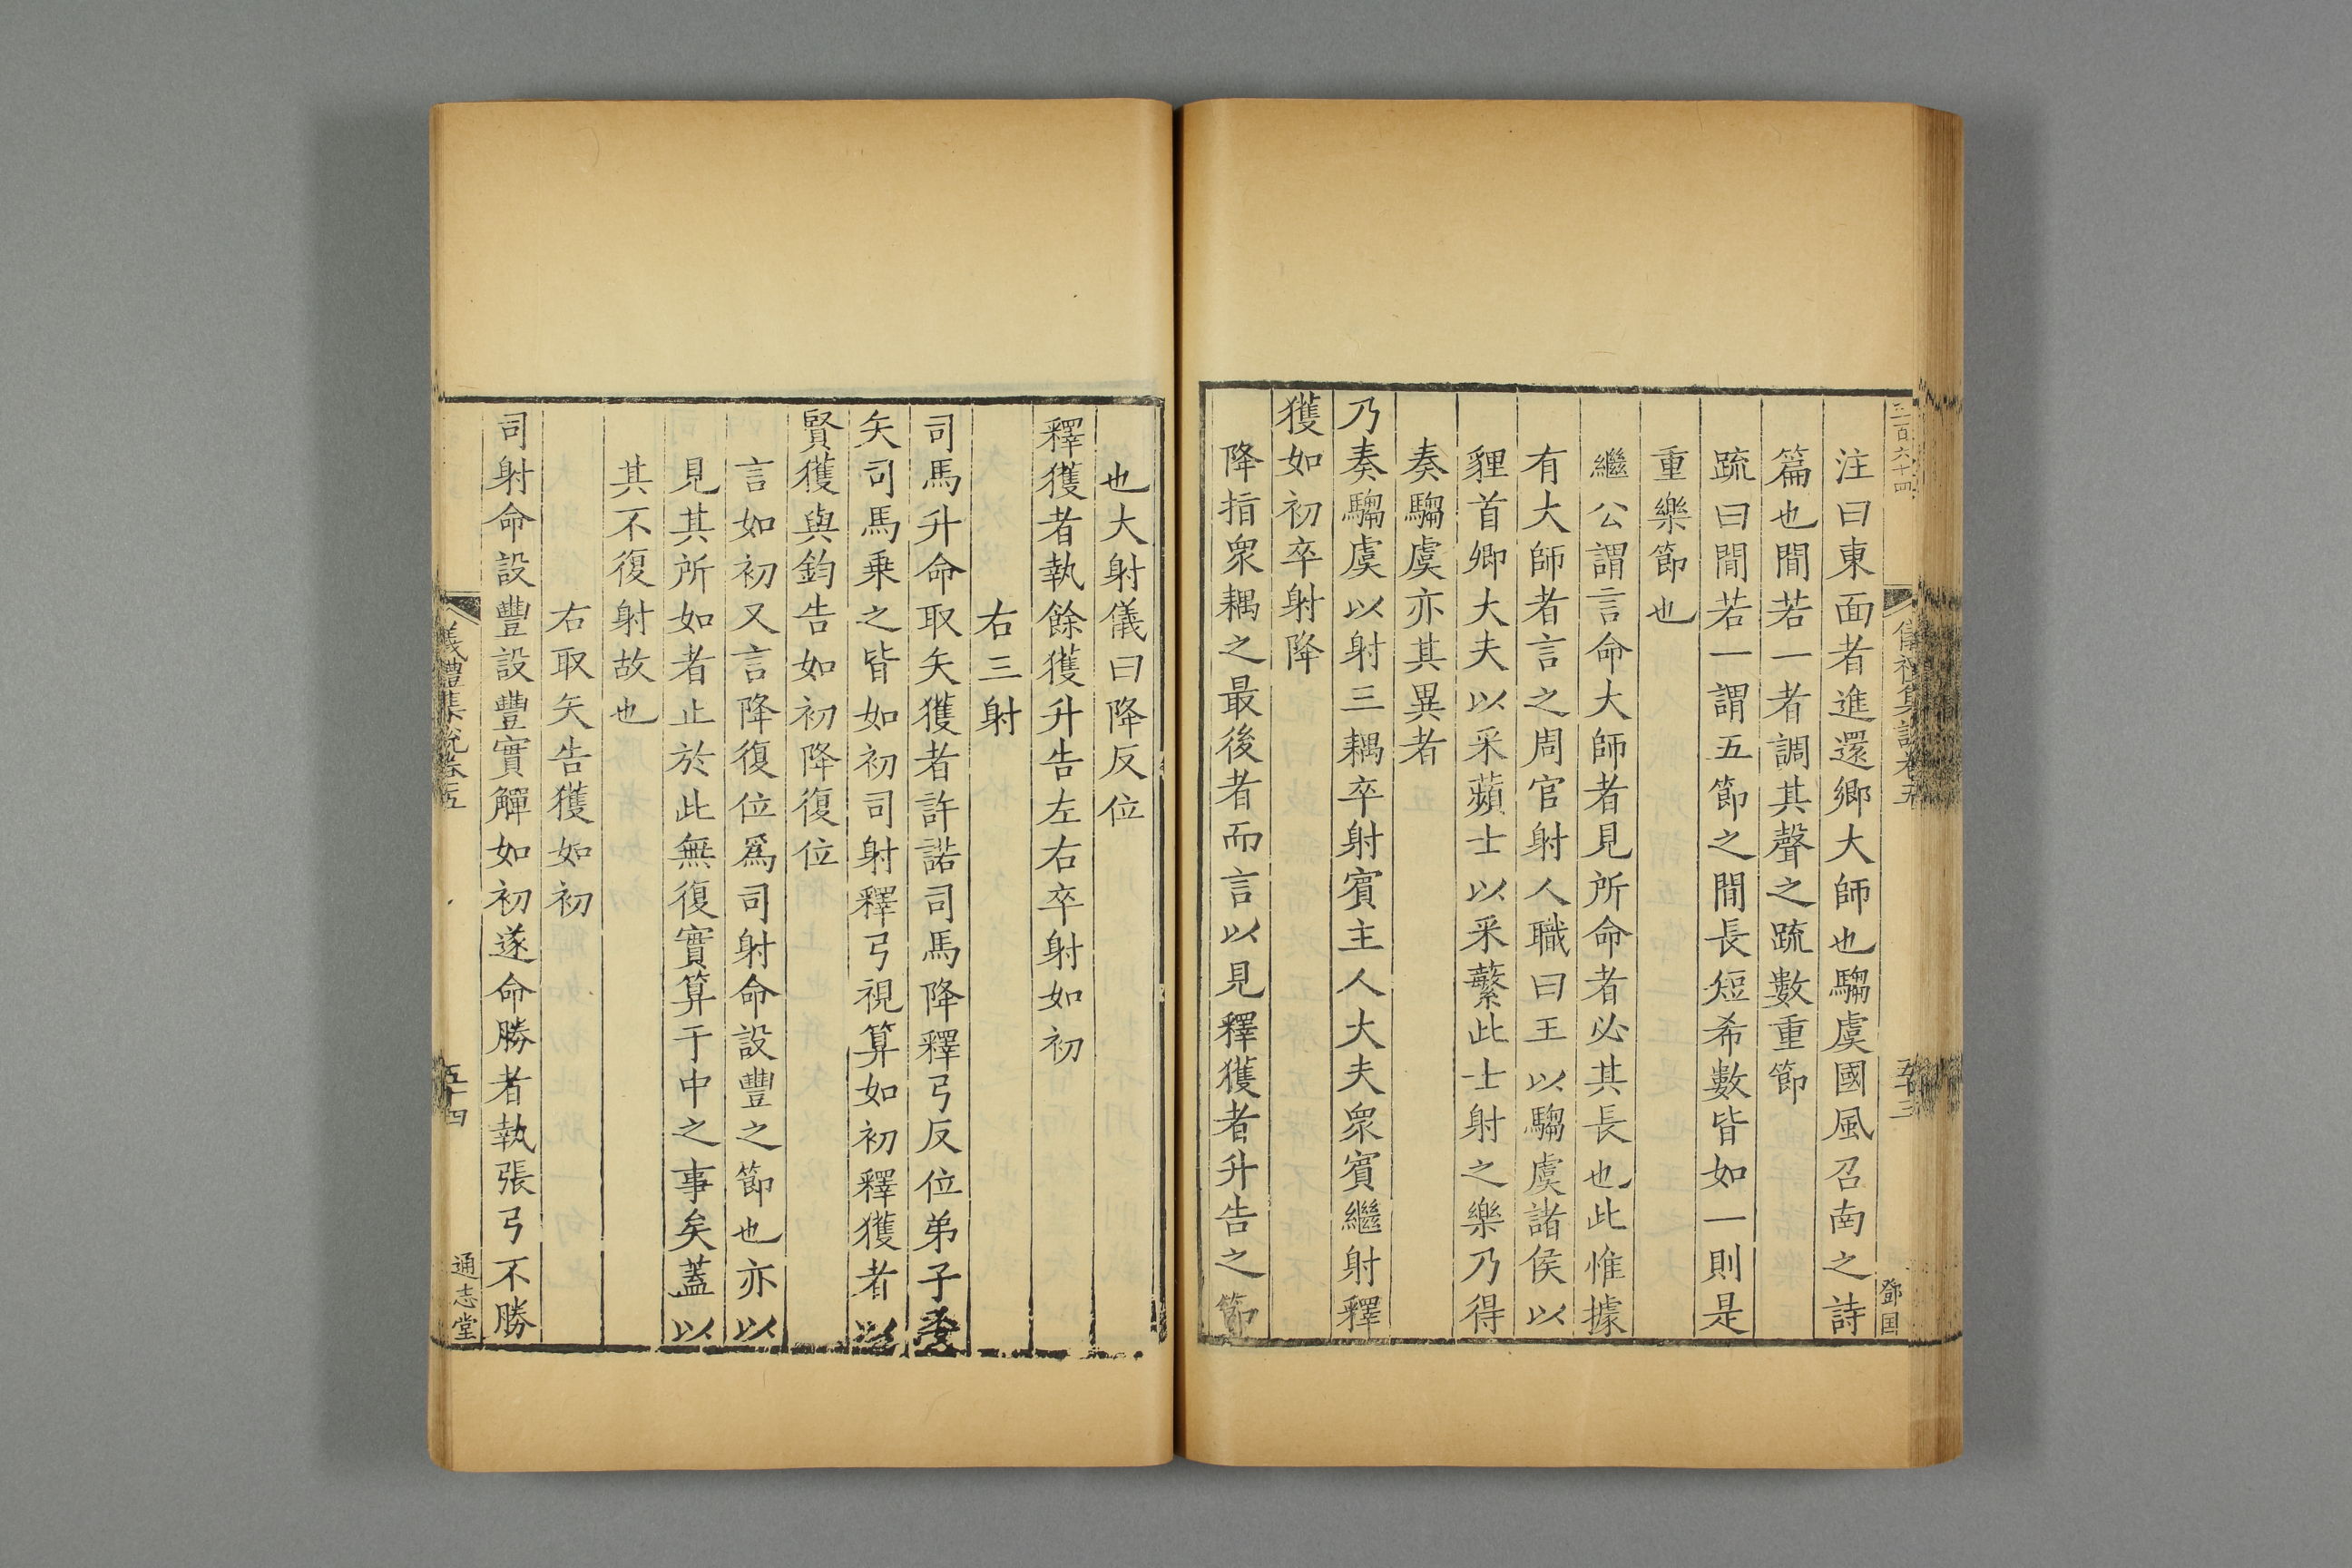 三百六十四
儀禮集說卷五
五十三
鄧国
注曰東面者進還鄉大師也騶虞國風召南之詩
篇也間若一者調其聲之疏數重節
疏曰間若一謂五節之間長短希數皆如一則是
重樂節也
繼公謂言命大師者見所命者必其長也此惟據
有大師者言之周官射人職曰王以騶虞諸侯以
貍首卿大夫以采蘋士以采蘩此士射之樂乃得
奏騶虞亦其異者
乃奏騶虞以射三耦卒射賓主人大夫眾賓繼射釋
獲如初卒射降
降指眾耦之最後者而言以見釋獲者升告之節
也大射儀曰降反位
釋獲者執餘獲升告左右卒射如初
右三射
司馬升命取矢獲者許諾司馬降釋弓反位弟子委
矢司馬乗之皆如初司射釋弓視算如初釋獲者以
賢獲與鈞告如初降復位
言如初又言降復位爲司射命設豐之節也亦以
見其所如者止於此無復實算于中之事矣蓋以
其不復射故也
右取矢告獲如初
司射命設豐設豐實觶如初遂命勝者執張弓不勝
儀禮集說卷五
五十四
通志堂